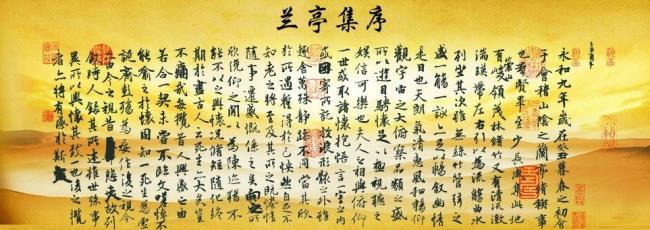 兰亭集序
永和九年歲在癸丑暮春之初會
于會稽山陰之蘭亭脩稧事
也群賢畢至少長咸集此地
有崇山峻領茂林脩竹又有清流激
湍暎帶左右引以為流觴曲水
列坐其次雖無絲竹管弦之
盛一觴一詠亦足以暢敘幽情
是日也天朗氣清惠風和暢仰
觀宇宙之大俯察品類之盛
所以遊目騁懷足以極視聽之
娛信可樂也夫人之相與俯仰
一世或取諸懷抱悟言一室之內
或因寄所託放浪形骸之外雖
趣舍萬殊靜躁不同當其欣
於所遇暫得於己怏然自足不
知老之將至及其所之既惓情
隨事遷感慨係之矣向之所
欣俛仰之閒以為陳迹猶不
能不以之興懷況脩短隨化終
期於盡古人云死生亦大矣豈
不痛哉每攬昔人興感之由
若合一契未嘗不臨文嗟悼不
能喻之於懷固知一死生為虛
誕齊彭殤為妄作後之視今
亦由今之視昔悲夫故列
敘時人錄其所述雖世殊事
異所以興懷其致一也後之攬
者亦將有感於斯文